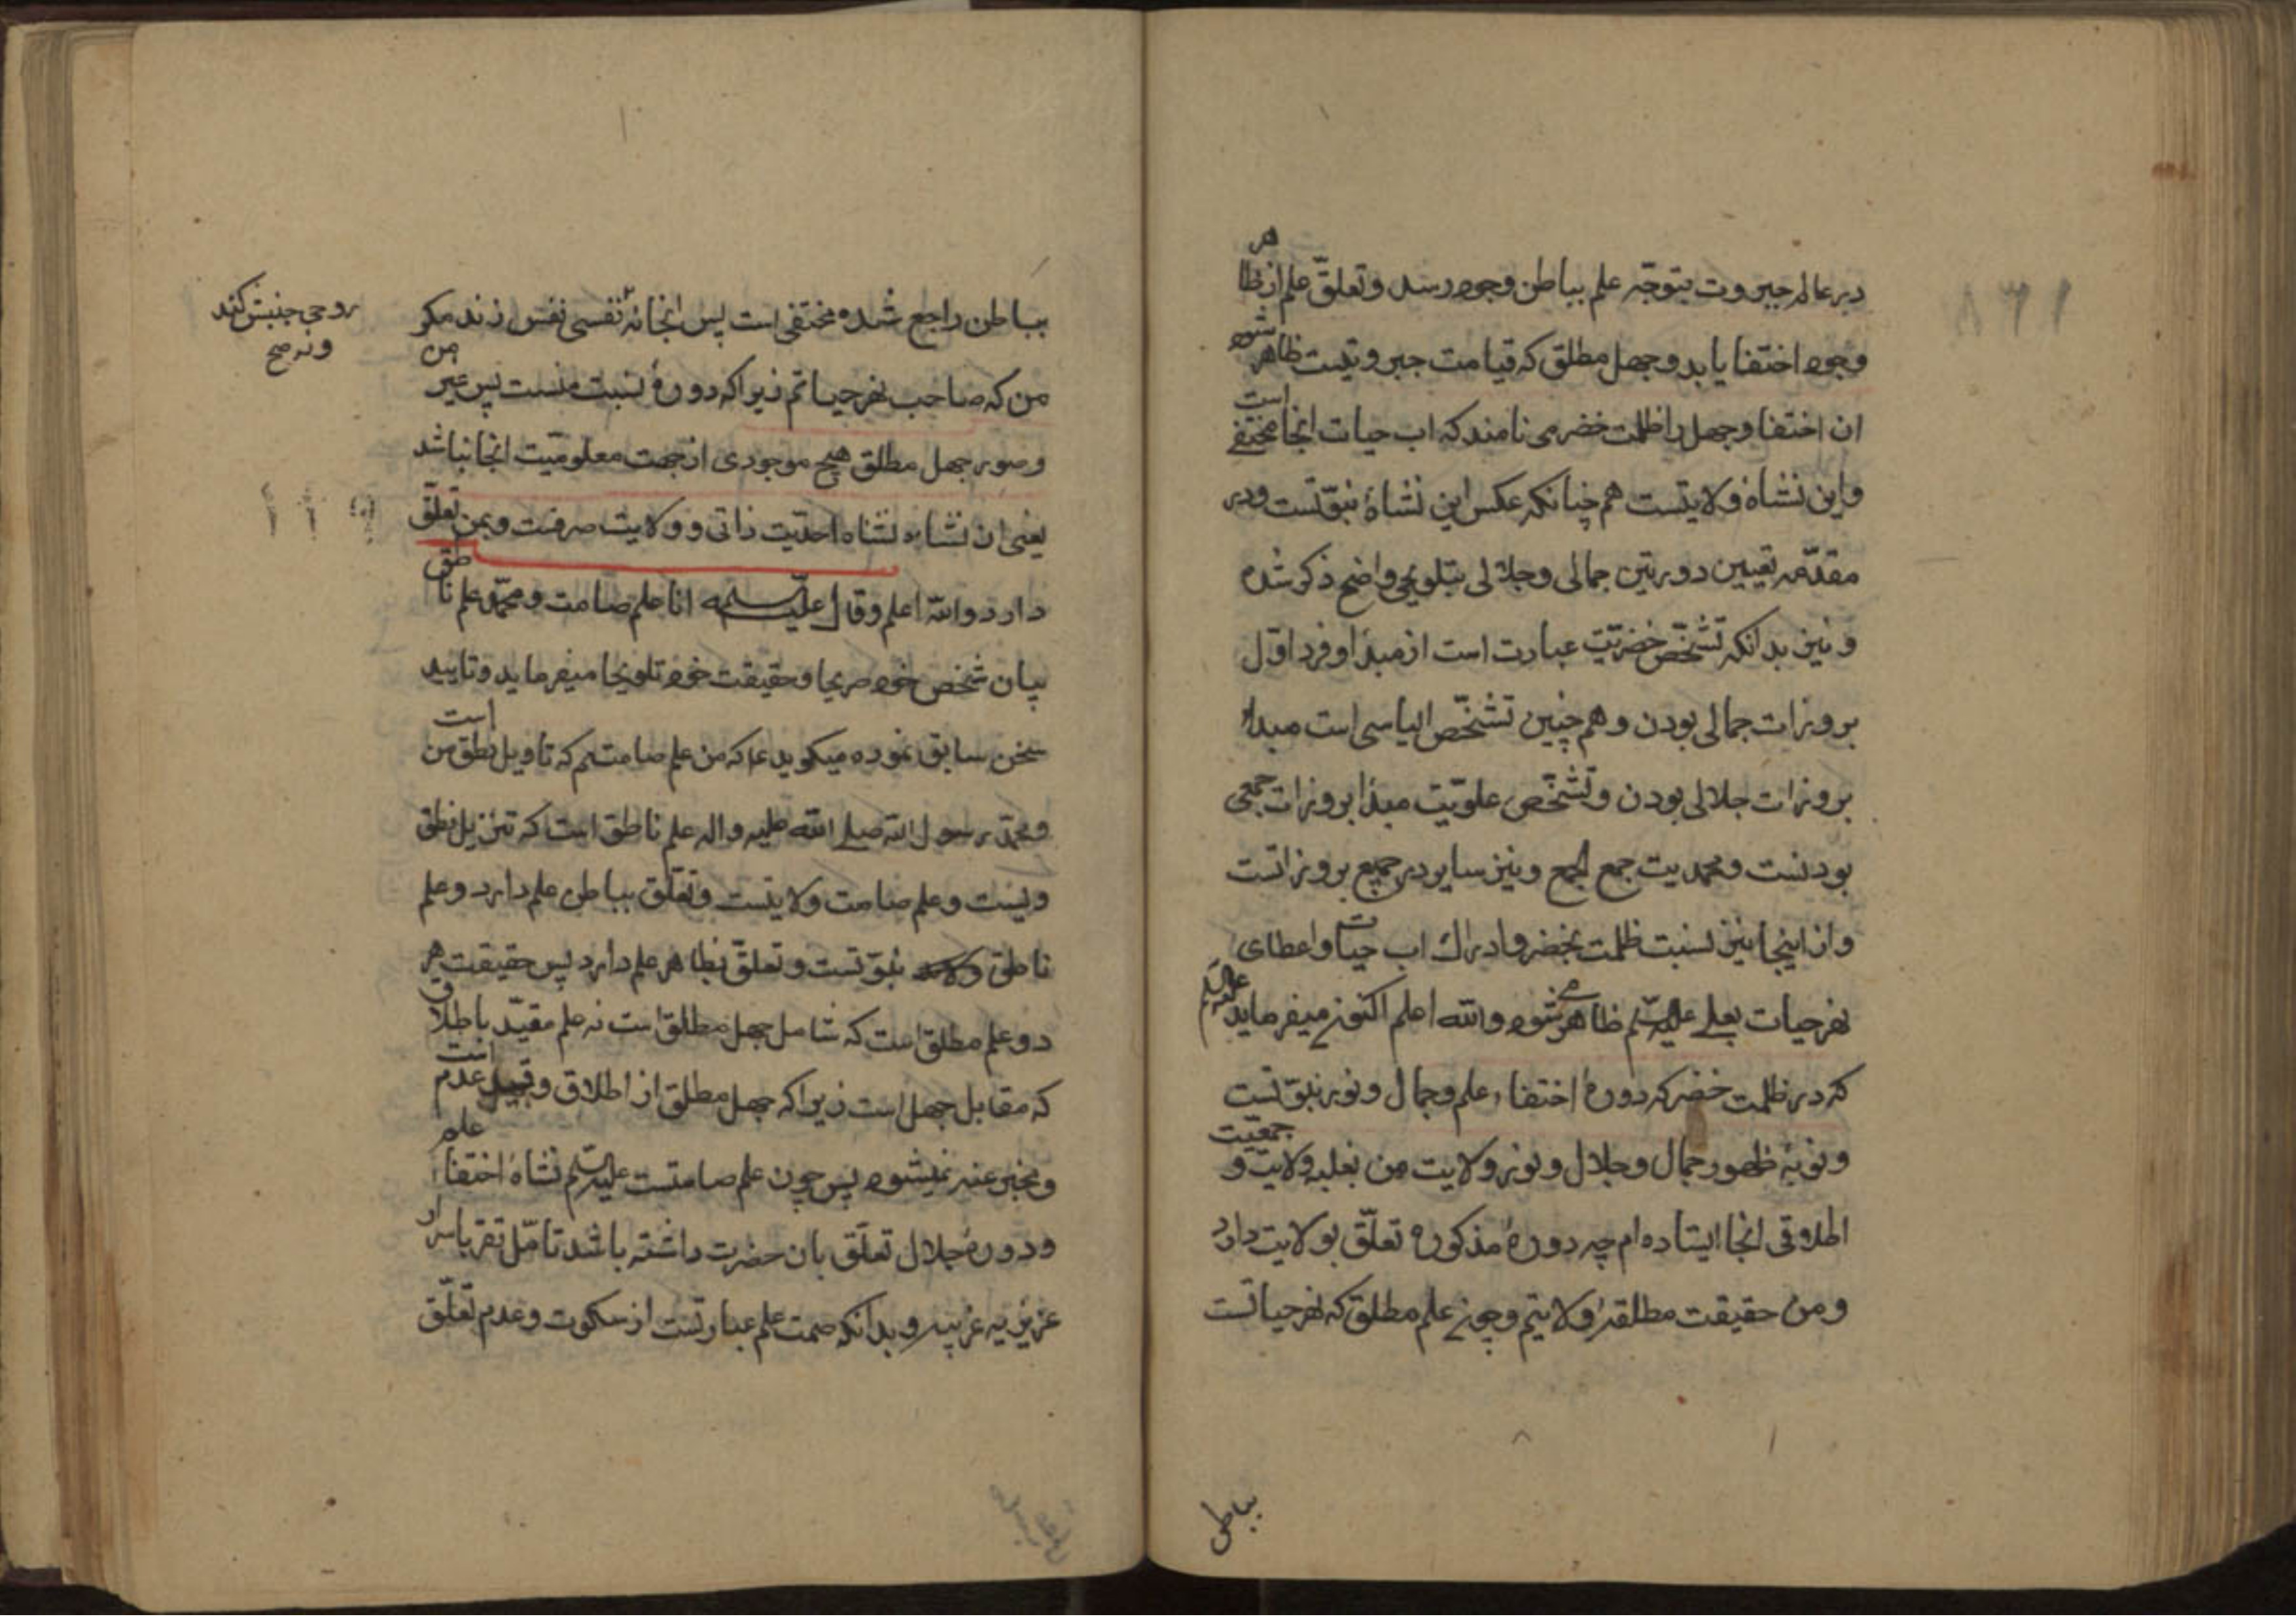 در عالم جبروت بتوجّه علم بباطن وجود رسد و تعلّق علم از ظاهر
وجود اختفا یابد و جهل مطلق که قیامت جبروتیست ظاهر شود
ان اختفا و جهل را ظلمت خضر می نامند که اب حیات انجا مختفی است
و این نشاهٔ ولایتست هم چنانکه عکس این نشاهٔ نبوّتست و در
مقدّمه تعیین دورتین جمالی و جلالی بتلویحی واضح ذکر شده
و نیز بدانکه تشخّص خضریّت عبارت است از مبدٔا و فرد اوّل
بروزات جمالی بودن و هم چنین تشخّص الیاسی است مبداٴ
بروزات جلالی بودن و تشخّص علویّت مبدٔا بروزات جمعی
بودنست و محمدیت جمع الجمع و نیز سایر در جمیع بروزاتست
و از اینجا نیز نسبت ظلمت بخضر و ادراك اب حیات و اعطای
نهر حیات بعلی علیه السّلم ظاهر می شود والله اعلم اکنون میفرماید علیه السلم
که در ظلمت خضر که دورهٔ اختفاء علم و جمال و نور نبوّتست
و نوبهٔ ظهور جمال و جلال و نور ولایت من بغلبه ولایت و جمعیّت
اطلاقی انجا ایستاده ام چه دورهٔ مذکوره تعلّق بولایت دارد
و من حقیقت مطلقهٔ ولایتم و چون علم مطلق که نهر حیاتست
بباطن
بباطن راجع شده مختفی است پس انجا نه نفسی نفس زند مکر
روحی جنبش کند
و نه صح
من که صاحب نهر حیاتم زیرا که دورهٔ نسبت منست پس غیر من
و صور جهل مطلق هیچ موجودی از جهت معلومیّت انجا نباشد
یعنی ان نشاه نشاه احدّیت ذاتی و ولایت صرفت و بمن تعلّق
دارد والله اعلم و قال علیه السلم انا علم صامت و محمّد علم ناطق
بیان شخص خود صریحا و حقیقت خود تلویحا میفرماید و تایید
سخن سابق نموده میکوید که من علم صامتم که تاویل نطق من است
و محمّد رسول الله صلی الله علیه و اله علم ناطق است که تنزیل نطق
ویست و علم صامت ولایتست و تعلّق بباطن علم دارد و علم
ناطق نبوّتست و تعلّق بظاهر علم دارد پس حقیقت هر
دو علم مطلق است که شامل جهل مطلق است نه علم مقیّد باطلاق
که مقابل جهل است زیرا که جهل مطلق از اطلاق و قبیل عدم است
و مخبر عنه نمیشود پس چون علم صامتست علیه السلم نشاهٔ اختفاء علم
و دورهٔ جلال تعلّق بان حضرت داشته باشد تامّل تقر باسرار
عزیزیه غریبه و بدانکه صمت علم عبارتست از سکوت و عدم تعلّق